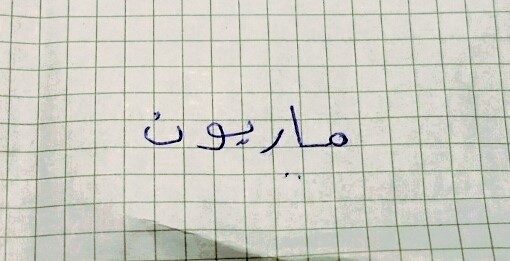 ماريون